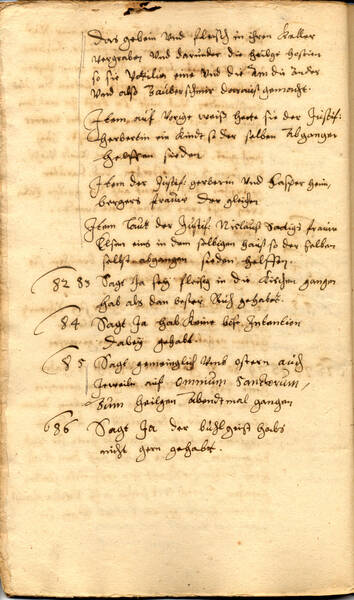 das gebein Und fleisch in ihren Keller
vergraben Und darunder die heilge hostien
so sie eine Und die am die ander
Und also Zauber schmir daraus gemacht.
Item auf vorige weiß hette sie der Justif:
herberlin ein Kindt so der selben Abgangen
helffen sieden
Item der Justif: gerberin Und Casper hein,
bergers frawe der gleichen
Item Laut der Justif: Niclauß frawe
Elsen eins in dem selbigen hauß so der selben
selbst abgangen sieden helffen.
82 83 Sagt Ja seÿ fleisig in die Kirchen gangen
hab als dan bester Ruh gehabet.
84 Sagt Ja hab Keine böse Intention
dabeÿ gehabt.
85 Sagt gemeinglich Umb ostern auch
Zeweiln auf Omnium Sanctorum,
Zum heilgen Abendtmal gangen
86 Sagt Ja der buhlgeist habs
nicht gern gehabt.